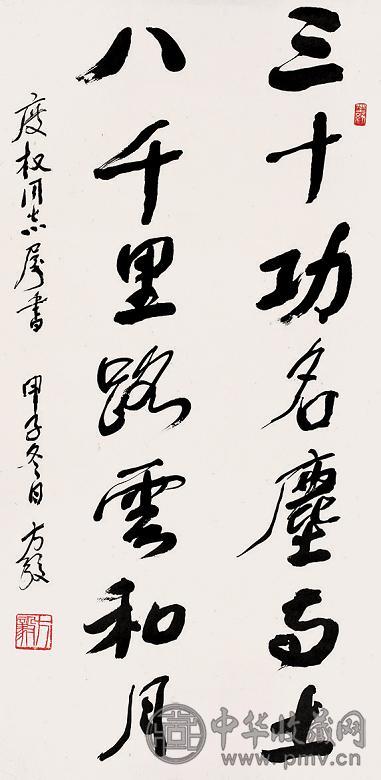 三十功名塵與土
八千里路雲和月
度权同志属書
甲子冬日 方毅
方毅
中华收藏网
www.pmcv.cn